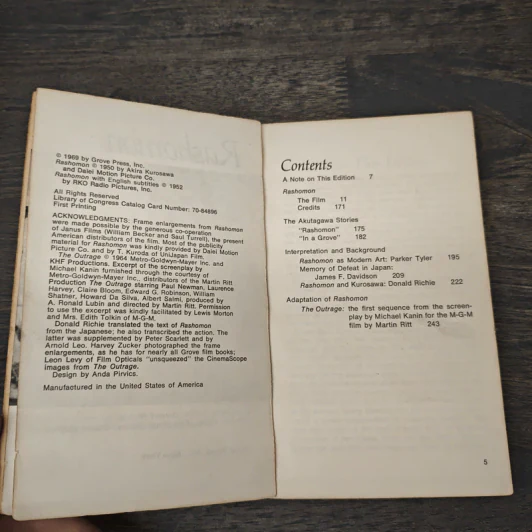 © 1969 by Grove Press, Inc.
Rashomon © 1950 by Akira Kurosawa
and Daiei Motion Picture Co.
Rashomon with English subtitles © 1952
by RKO Radio Pictures, Inc.
All Rights Reserved
Library of Congress Catalog Card Number: 70-84896
First Printing
ACKNOWLEDGMENTS: Frame enlargements from Rashomon
were made possible by the generous co-operation
of Janus Films (William Becker and Saul Turell), the present
American distributors of the film. Most of the publicity
material for Rashomon was kindly provided by Daiei Motion
Picture Co. and by T. Kuroda of UniJapan Film.
The Outrage © 1964 Metro-Goldwyn-Mayer Inc. and
KHF Productions. Excerpt of the screenplay by
Michael Kanin furnished through the courtesy of
Metro-Goldwyn-Mayer Inc., distributors of the Martin Ritt
Production The Outrage starring Paul Newman, Laurence
Harvey, Claire Bloom, Edward G. Robinson, William
Shatner, Howard Da Silva, Albert Salmi, produced by
A. Ronald Lubin and directed by Martin Ritt. Permission
to use the excerpt was kindly facilitated by Lewis Morton
and Mrs. Edith Tolkin of M-G-M.
Donald Richie translated the text of Rashomon
from the Japanese; he also transcribed the action. The
latter was supplemented by Peter Scarlett and by
Arnold Leo. Harvey Zucker photographed the frame
enlargements, as he has for nearly all Grove film books;
Leon Levy of Film Opticals "unsqueezed" the CinemaScope
images from The Outrage.
Design by Anda Pirvics.
Manufactured in the United States of America
Contents
A Note on This Edition 7
Rashomon
The Film 11
Credits 171
The Akutagawa Stories
"Rashomon" 175
"In a Grove" 182
Interpretation and Background
Rashomon as Modern Art: Parker Tyler 195
Memory of Defeat in Japan:
James F. Davidson 209
Rashomon and Kurosawa: Donald Richie 222
Adaptation of Rashomon
The Outrage: the first sequence from the screen-
play by Michael Kanin for the M-G-M
film by Martin Ritt 243
5